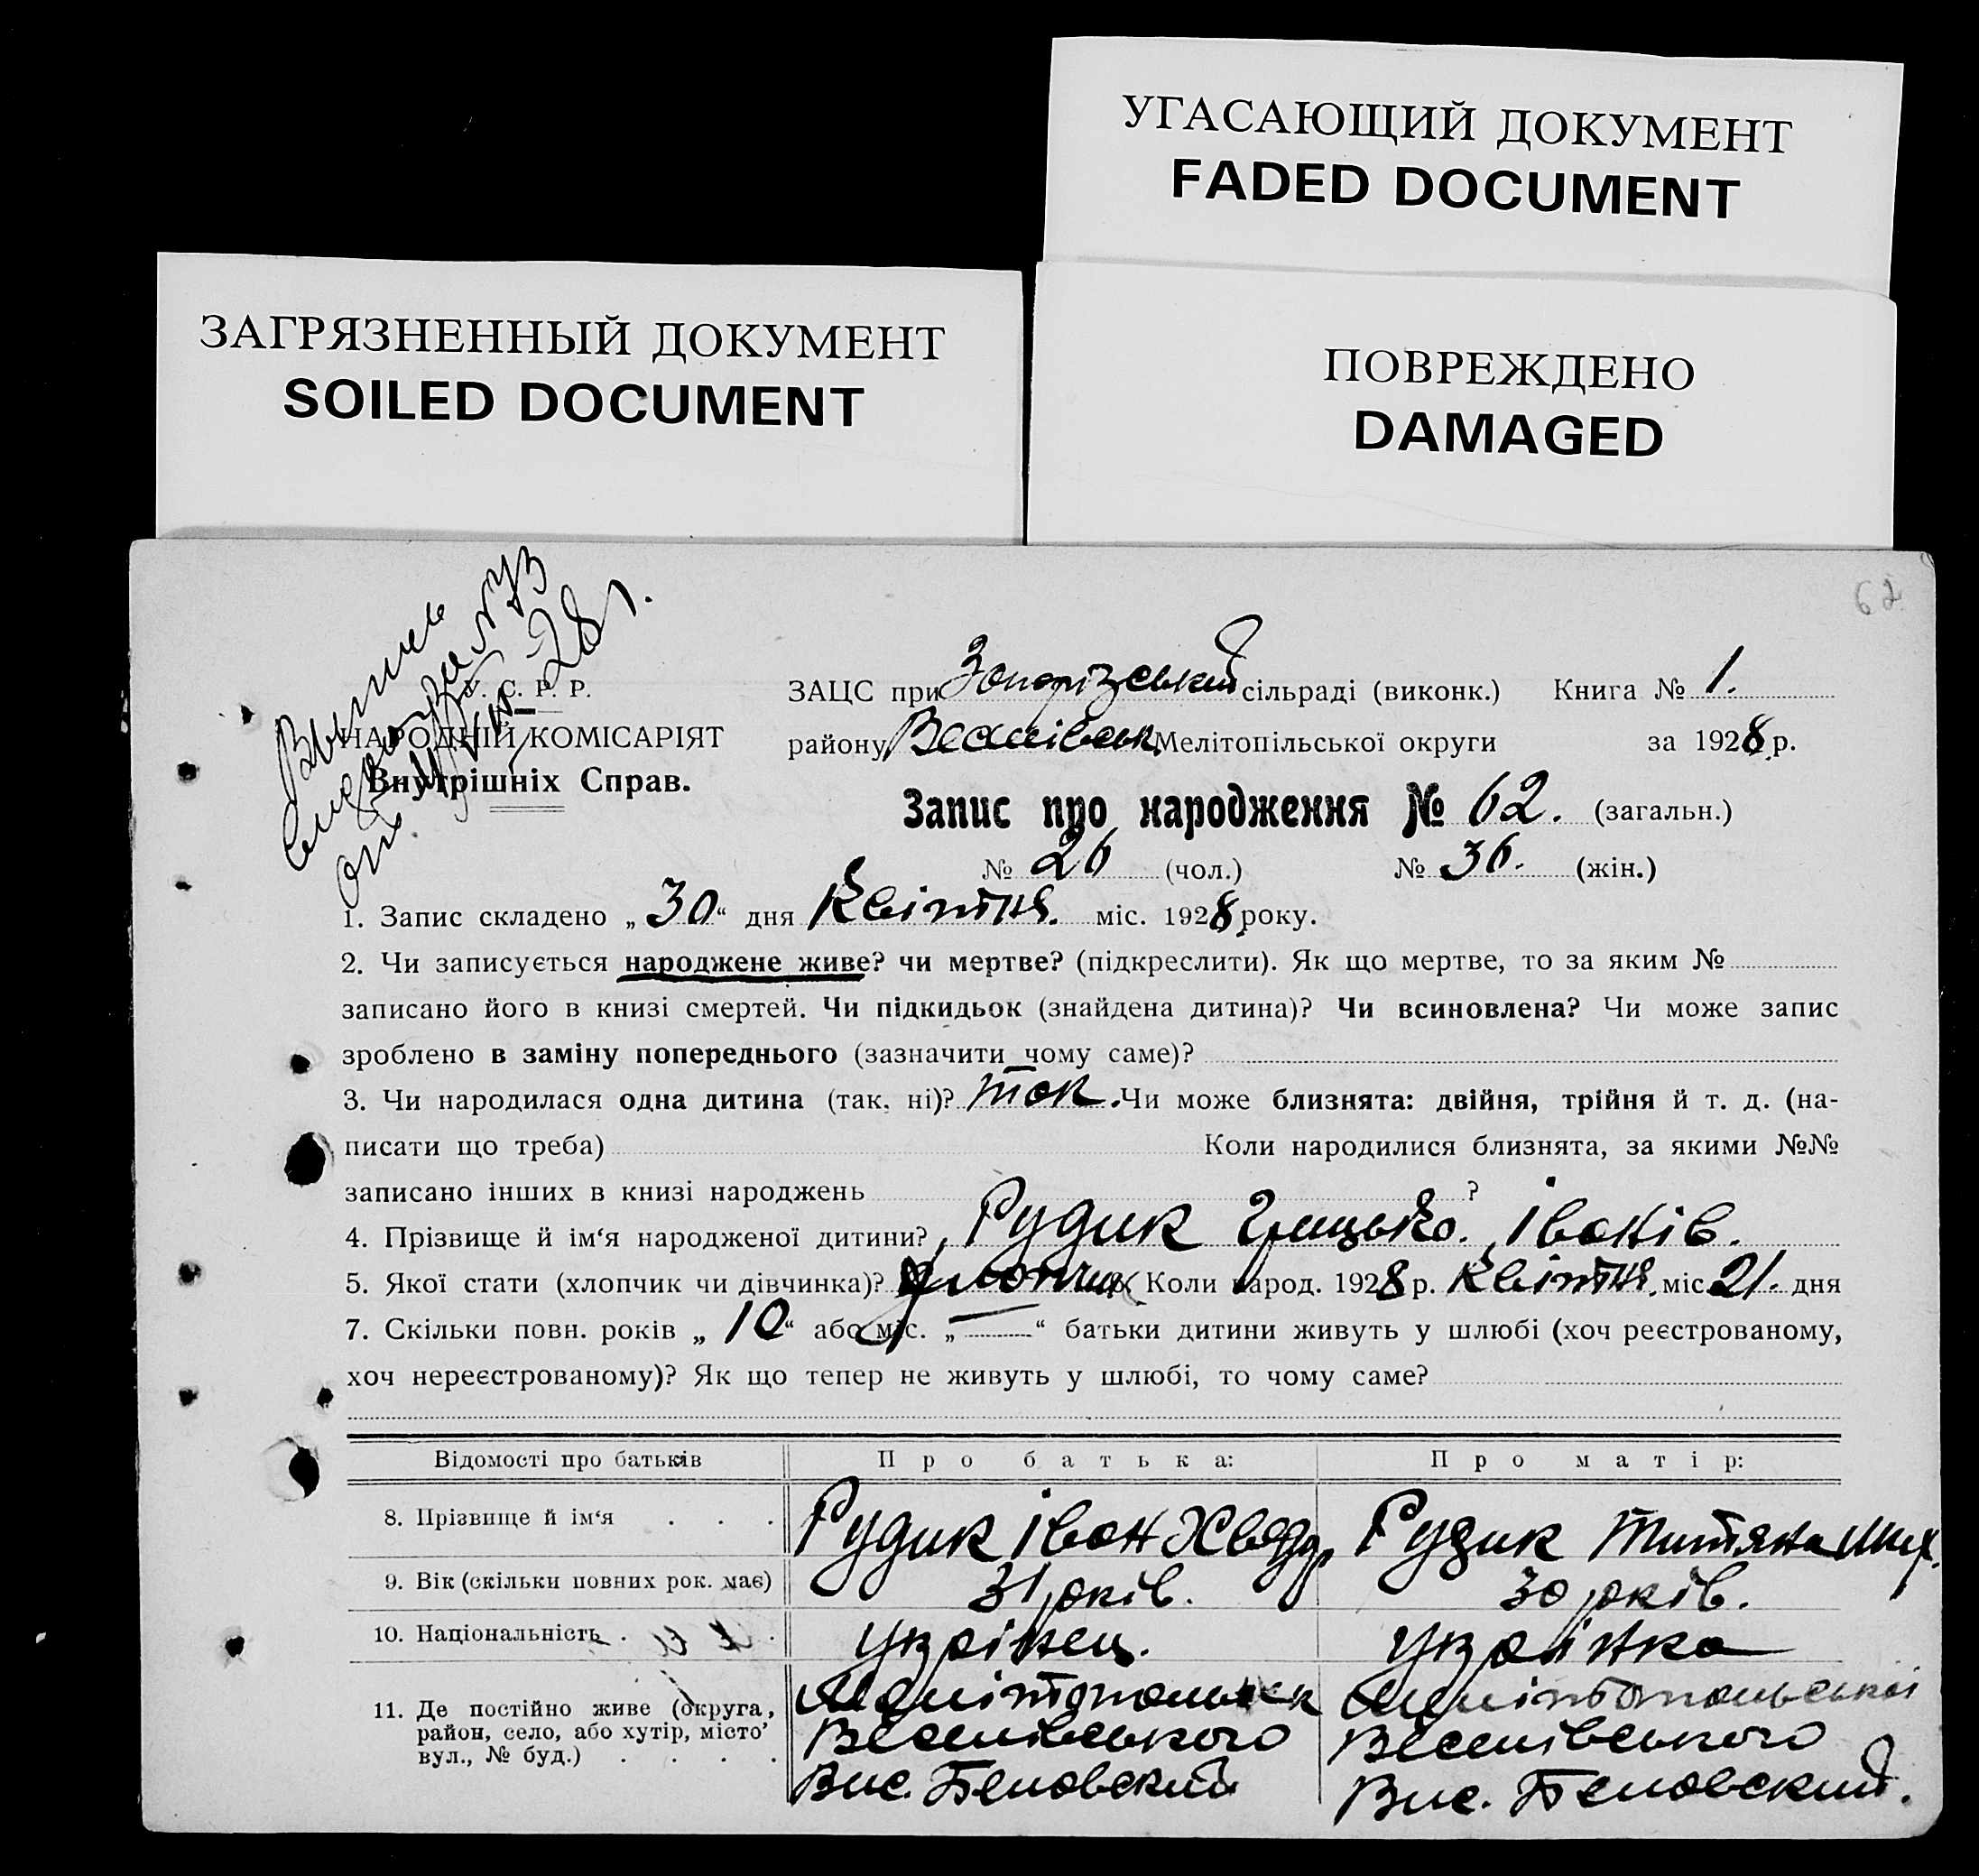 УГАСАЮЩИЙ ДОКУМЕНТ
FADED DOCUMENT
ЗАГРЯЗНЕННЫЙ ДОКУМЕНТ
SOILED DOCUMENT
ПОВРЕЖДЕНО
DAMAGED
62
28 г.
У. С. Р. Р.
НАРОДНІЙ КОМІСАРІЯТ
Внутрішніх Справ.
ЗАЦС при Запорізський сільраді (виконк.) Книга № 1.
району Веселівськ. Мелітопільської округи за 1928 р.
Запис про народження № 62. (загальн.)
№ 26 (чол.) № 36. (жін.)
1. Запис складено „30“ дня Квітня. міс. 1928 року.
2. Чи записується народжене живе? чи мертве? (підкреслити). Як що мертве, то за яким №
записано його в книзі смертей. Чи підкидьок (знайдена дитина)? Чи всиновлена? Чи може запис
зроблено в заміну попереднього (зазначити чому саме)?
3. Чи народилася одна дитина (так, ні)? так. Чи може близнята: двійня, трійня й т. д. (на-
писати що треба) Коли народилися близнята, за якими №№
записано інших в книзі народжень ?
4. Прізвище й ім‘я народженої дитини? Рудик Грицько. Іванів.
5. Якої стати (хлопчик чи дівчинка)? хлопчик Коли народ. 1928 р. Квітня. міс. 21. дня
7. Скільки повн. років „10“ або міс. „—“ батьки дитини живуть у шлюбі (хоч реєстрованому,
хоч нереєстрованому)? Як що тепер не живуть у шлюбі, то чому саме?
Відомості про батьків Про батька: Про матір:
8. Прізвище й ім‘я . . . Рудик Іван Хведр. Рудик Титяна Мих.
9. Вік (скільки повних рок. має) 31 років. 30 років.
10. Національність . . Українець. Українка
11. Де постійно живе (округа, Мелітопольськ Мелітопольської
район, село, або хутір, місто’ Веселівського Веселівського
вул., № буд.) . . . . Вис. Беловский Вис. Беловский.